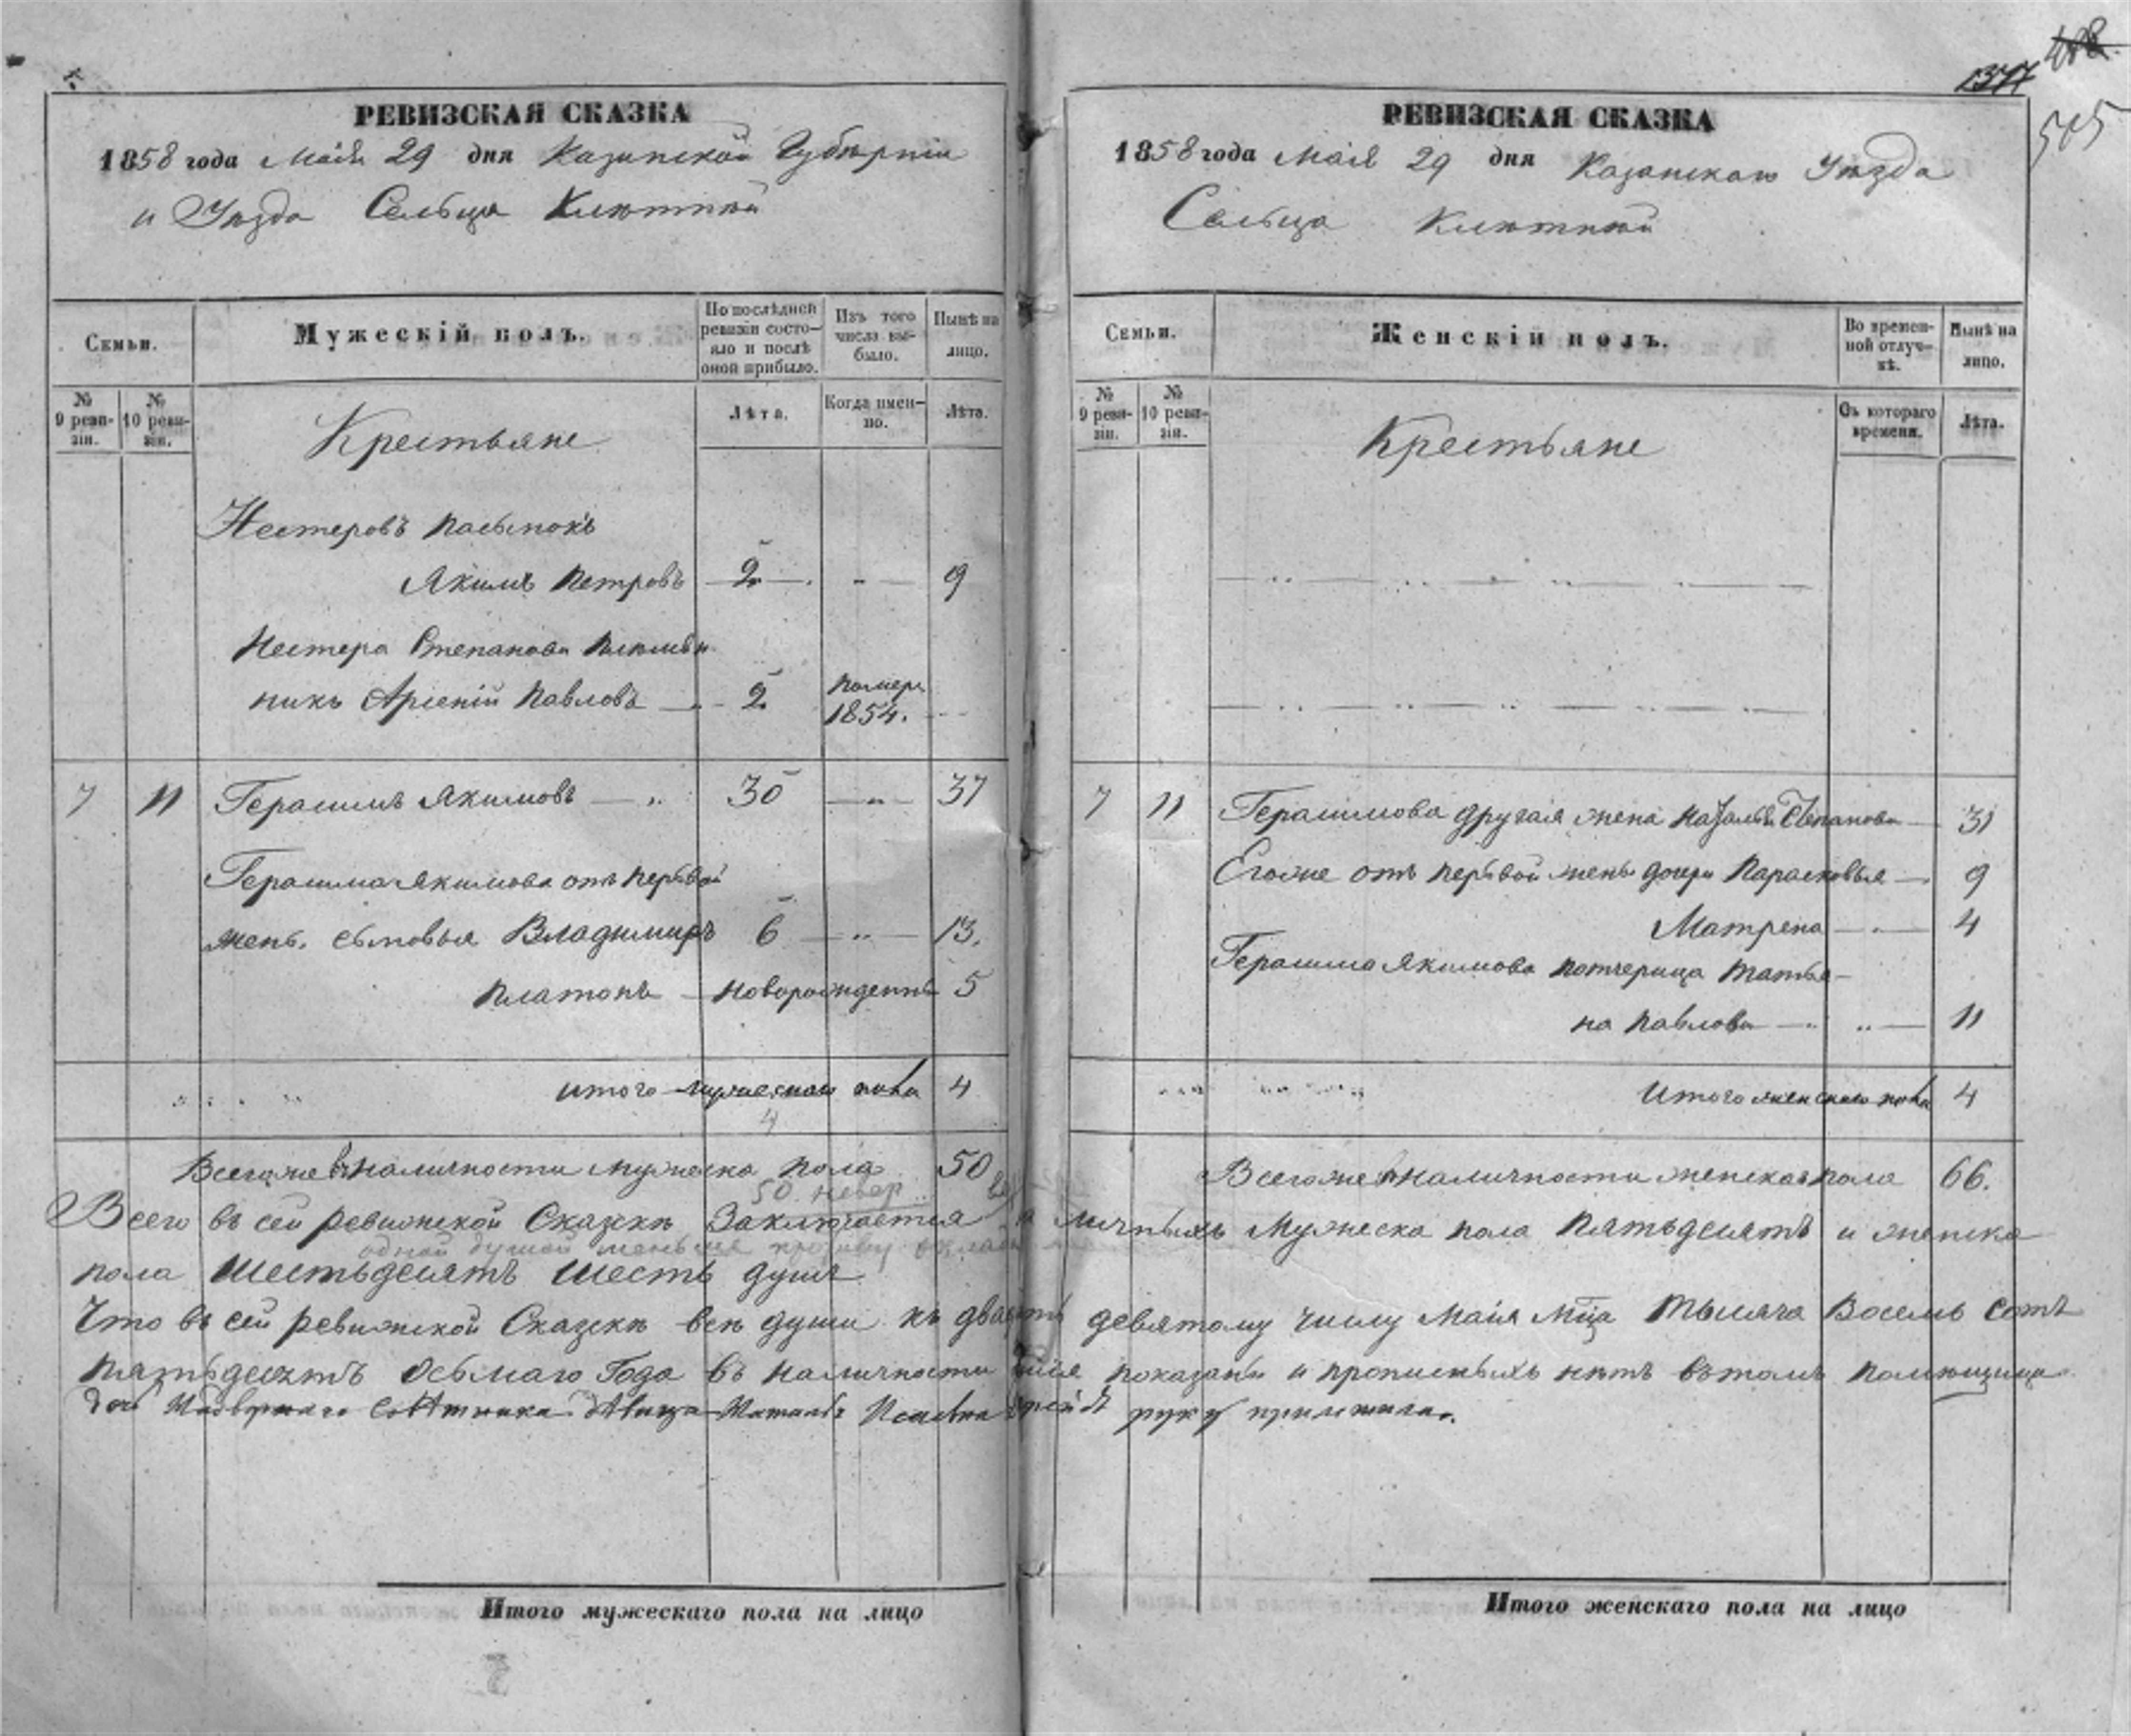 РЕВИЗСКАЯ СКАЗКА
1858 года Маія 29 дня Казанской Губерніи
и Уѣзда Сельца Ключей
Семьи.
Мужескій полъ.
По послѣдней ревизіи состояло и послѣ оной прибыло.
Изъ того числа выбыло.
Нынѣ на лицо.
№ 9 ревизіи.
№ 10 ревизіи.
Крестьяне
Лѣта.
Когда именно.
Лѣта.
Нестеровъ пасынокъ
Якимъ Петровъ 2 9
Нестера Степанова племян-
никъ Арсеній Павловъ 2 помер 1854.
7 11 Герасимъ Якимовъ 30 37
Герасима Якимова отъ первой
жены сыновья Владимиръ 6 13.
Платонъ новорожденны 5
итого мужескаго пола 4
4
Всегоже въ наличности мужеска пола 50
РЕВИЗСКАЯ СКАЗКА
1858 года Маія 29 дня Казанскаго Уѣзда
Сельца
505
Семьи.
Женскій полъ.
Во временной отлучкѣ.
Нынѣ на лицо.
№ 9 ревизіи.
№ 10 ревизіи.
Крестьяне
Съ котораго времени.
Лѣта.
7 11 Герасимова другая жена Наталья Степанова 31
Егоже отъ первой жены дочери Парасковья 9
Матрена 4
Герасима Якимова потчерица Татья-
на Павлова 11
Итого женскаго пола 4
Всегоже въ наличности женска пола 66.
50
одной душой меньше противу
Всего въ сей ревижской Сказкѣ Заключается наличныхъ Мужеска пола Пятьдесятъ и женска
пола Шестьдесятъ Шесть душъ
Что въ сей ревижской Сказкѣ всѣ души къ двадцать девятому числу Маія Мца Тысяча Восемь сотъ
пятьдесятъ осьмаго Года въ наличности показаны и прописныхъ нѣтъ въ томъ помѣщица
Надворнаго Советника Девица Наталья руку приложила.
Итого мужескаго пола на лицо
Итого женскаго пола на лицо